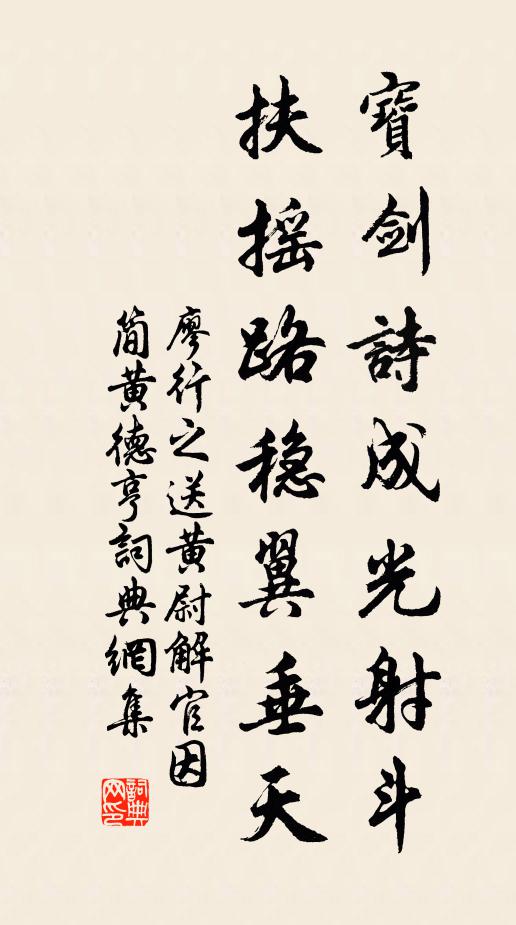 寶劍詩成光射斗
扶摇路稳翼垂天
廖行之送黄尉解官因
简黄德亨詞典網集
詞典
网印